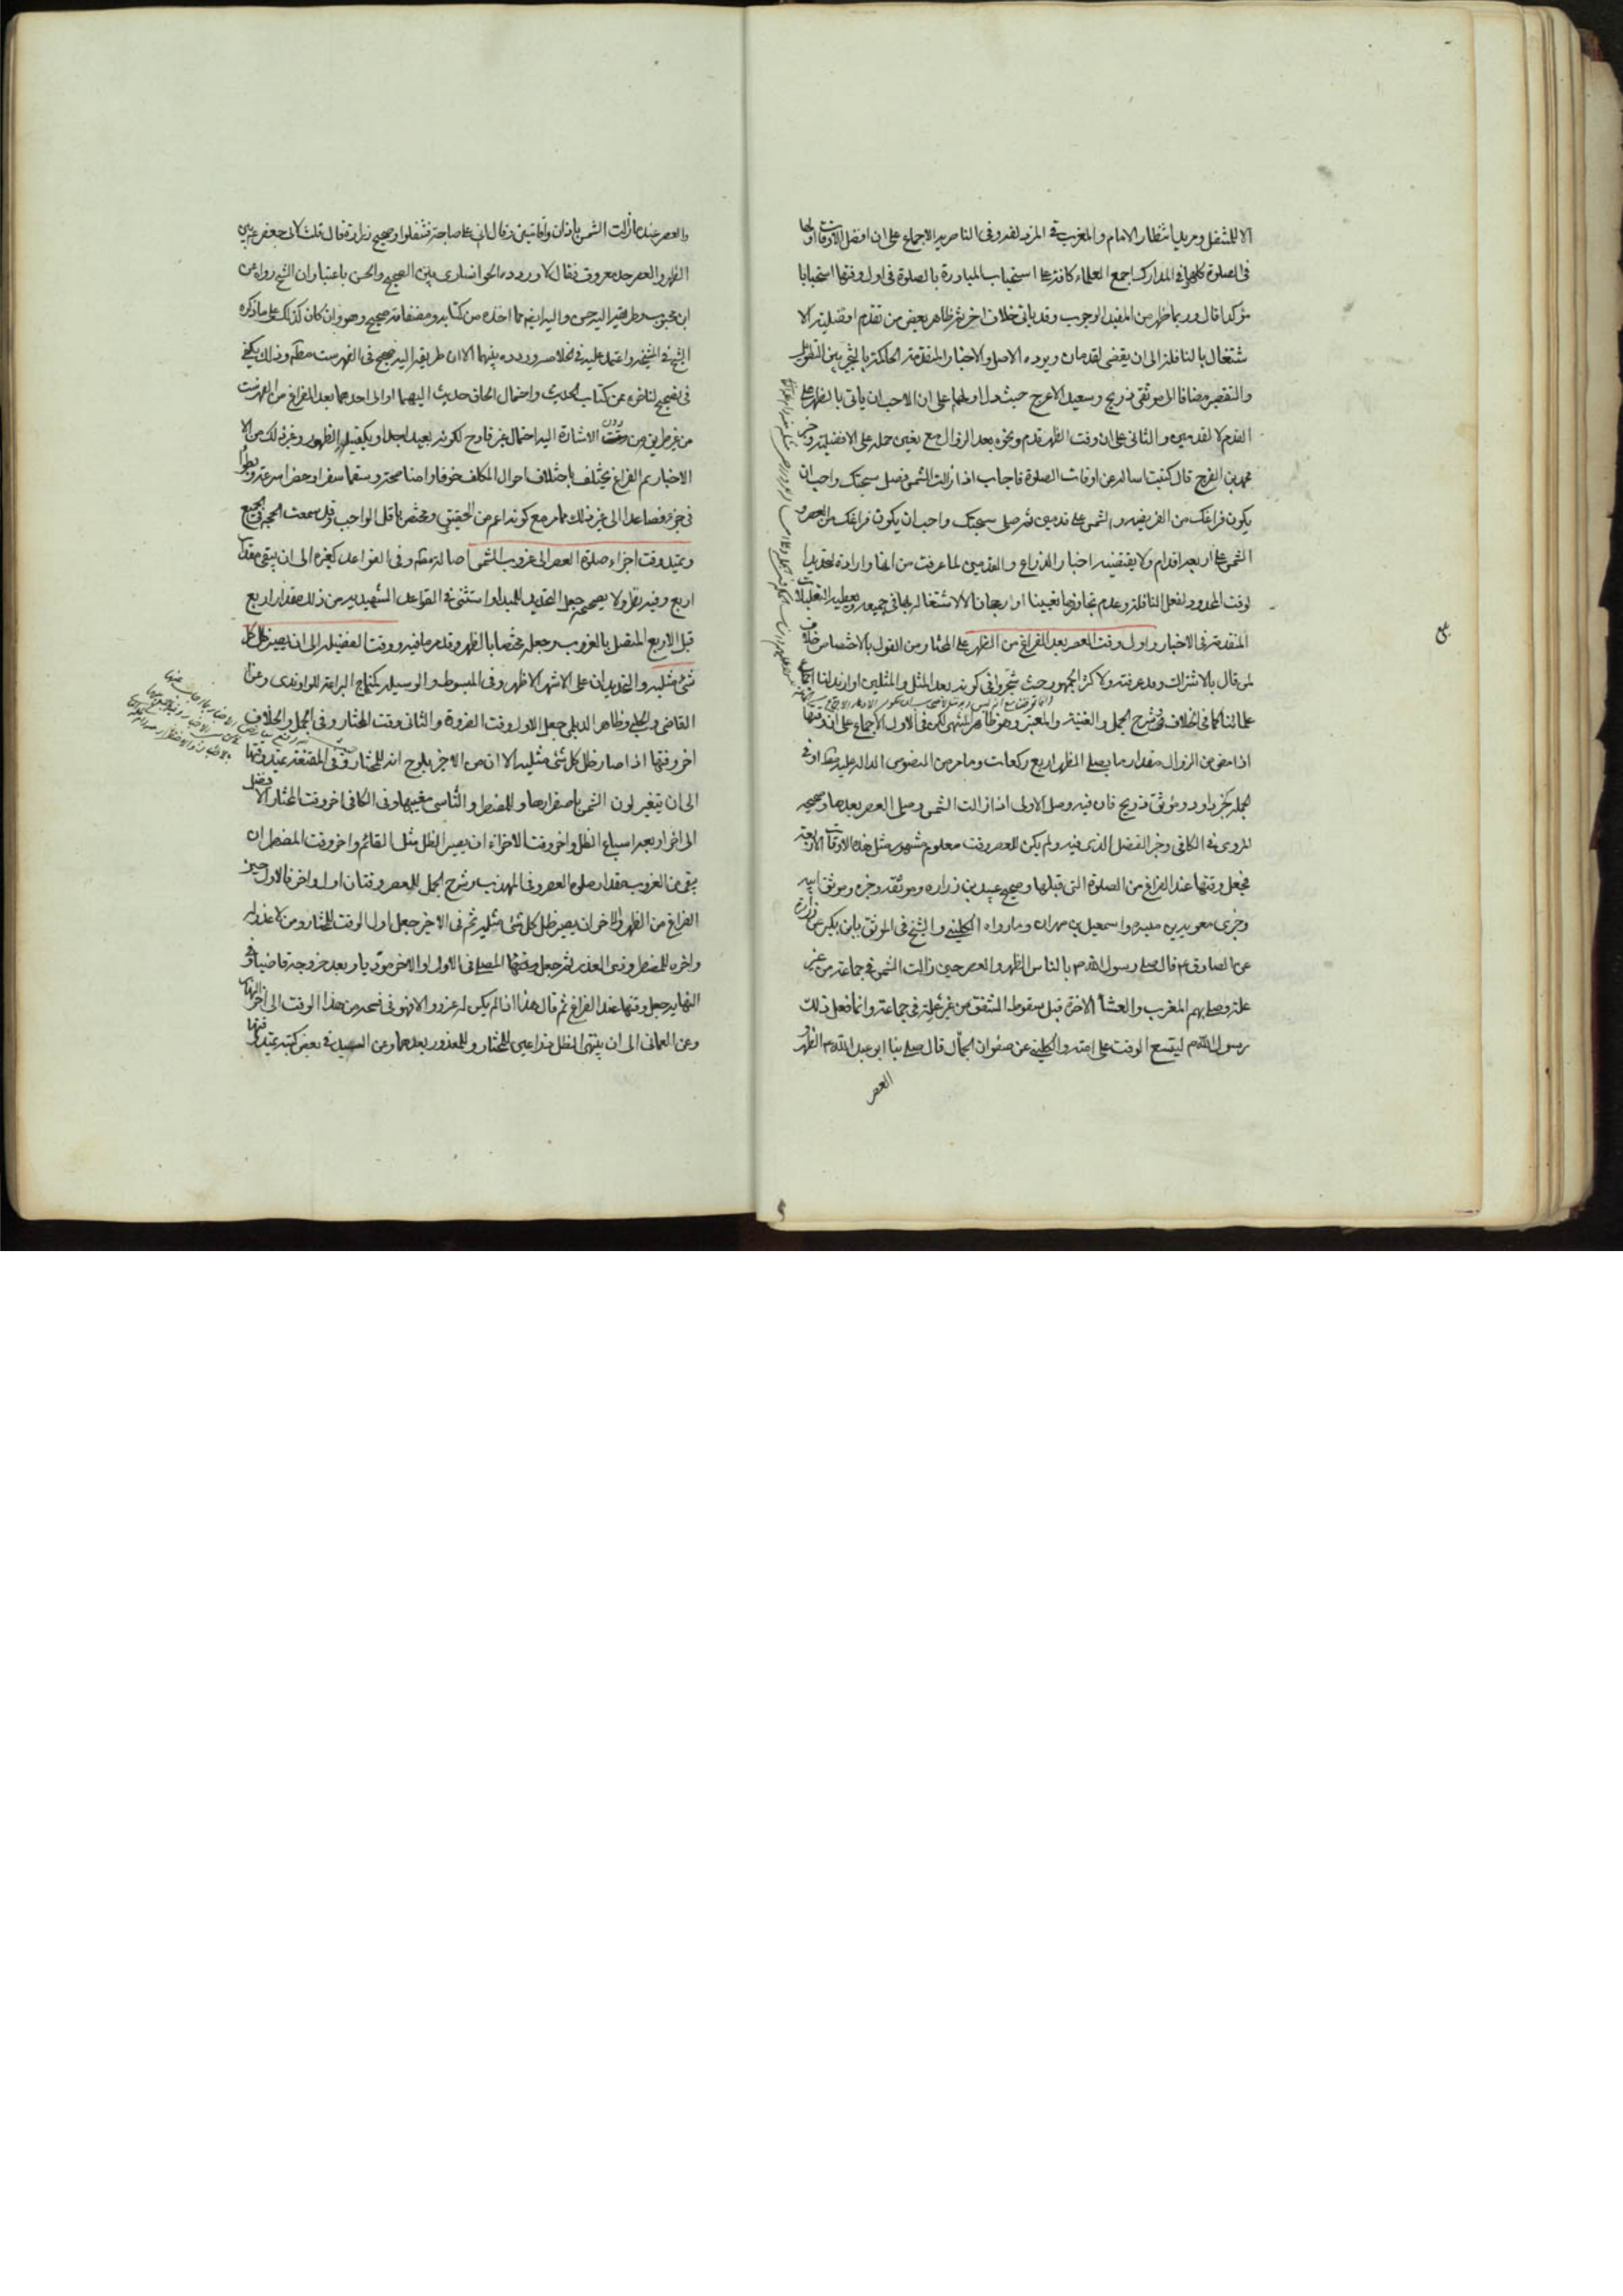 الا للمتنفل ومريد انتظار الامام والمغرب في المزدلفة وفي الناصرية الاجماع على ان افضل الاوقات اولها
في الصلوة كلها وفي المدارك اجمع العلماء كافة على استحباب المبادرة بالصلوة في اول وقتها استحبابا
مؤكدا قال وربما ظهر من المفيد الوجوب وقد ياتي خلاف اخر ثم ظاهر بعض من تقدم افضلية الا
شتغال بالنافلة الى ان يقضى القدمان ويرده الاصل والاخبار المتقدمة الحاكمة بالتخيير بين التطويل
والتقصير مضافا الى موثقي ذريح وسعيد الاعرج حيث دل اولهما على ان الاحب ان ياتى بالظهر على
القدم لا القدمين والثاني على ان وقت الظهر قدم ونحوه بعد الزوال مع تعين حمله على الافضلية وخبر
محمد بن الفرج قال كتبت اساله عن اوقات الصلوة فاجاب اذا زالت الشمس فصل سبحتك واحب ان
يكون فراغك من الفريضة والشمس على قدمين ثم صل سبحتك واحب ان يكون فراغك من العصر و
الشمس على اربعة اقدام ولا يقتضيه اخبار الذراع والقدمين لما عرفت من انها وارادة لتحديد
الوقت المحدود لفعل النافلة وعدم تجاوزها تعيينا او رجحانا لا الاشتغال بها في جميعه ويعطيه التعليلات
المتقدمة في الاخبار واول وقت العصر بعد الفراغ من الظهر على المختار من القول بالاختصاص خلافا
لمن قال بالاشتراك وقد عرفته ولاكثر الجمهور حيث شجروا في كونه بعد المثل والمثلين او ازيد لنا اجماع
علمائنا كما في الخلاف وشرح الجمل والغنية والمعتبر وهو ظاهر المنتهى لكن في الاول الاجماع على ان وقتها
اذا مضى من الزوال مقدار ما يصلى الظهر اربع ركعات وما مر من النصوص الدالة عليه او في
الجملة كخبر داود وموثق ذريح فان فيه وصل الاولى اذا زالت الشمس وصل العصر بعدها وصحيحه
المروى في الكافي وخبر الفضل الذى فيه ولم يكن للعصر وقت معلوم مشهور مثل هذه الاوقات الاربعة
فجعل وقتها عند الفراغ من الصلوة التي قبلها وصحيح عبيد بن زرارة وموثقه وخبره وموثق ابيه
وخبرى معوية بن ميسرة واسمعيل بن مهران وما رواه الكليني والشيخ في الموثق بابن بكير عن زرارة
عن الصادق ع قال صلى رسول الله ص بالناس الظهر والعصر حين زالت الشمس في جماعة من غير
علة وصلى بهم المغرب والعشاء الاخرة قبل سقوط الشفق من غير علة في جماعة وانما فعل ذلك
رسول الله ص ليتسع الوقت على امته والكليني عن صفوان الجمال قال صلى بنا ابو عبد الله ع الظهر
العصر
والعصر عند ما زالت الشمس باذان واقامتين وقال اني على حاجة فتنفلوا وصحيح زرارة قال قلت لابي جعفر ع بين
الظهر والعصر حد معروف فقال لا وردده الخوانسارى بين الصحيح والحسن باعتبار ان الشيخ رواه عن
ابن محبوب وطريقه اليه حسن واليه ايضم مما اخذه من كتابه ومصنفاته صحيح وهو وان كان كذلك على ما ذكره
الشيخ في المشيخة واعتمد عليه في الخلاصة وردده بينهما الا ان طريقه اليه صحيح في الفهرست مطم وذلك يكفي
في تصحيح لتاخره عن كتاب الحديث واحتمال الحاق حديث اليهما او الى احدهما بعد الفراغ من الفهرست
من غير طريق من دون الاشارة اليه احتمال غير قادح لكونه بعيدا جدا ويكفينا الظهور وغير ذلك من الا
الاخبار ثم الفراغ يختلف باختلاف احوال المكلف خوفا وامنا صحة وسقما سفرا وحضرا سرعة وبطؤا
في جزء فصاعدا الى غير ذلك مما مر مع كونه اعم من الحقيقي ومختص باقل الواجب وقد سمعت الحجة في الجميع
ويمتد وقت اجزاء صلوة العصر الى غروب الشمس اصالة مطم وفي القواعد كغيره الى ان يبقى مقدار
اربع وفيه نظر ولا يصححه جعل التحديد للمبدا واستثنى في القواعد الشهيدية من ذلك مقدار اربع
قبل الاربع المتصل بالغروب وجعله مختصا بالظهر وقد مر ما فيه ووقت الفضيلة الى ان يصير ظل كل
شئ مثليه والتحديدان على الاشهر الاظهر وفي المبسوط والوسيلة كمنهاج البراعة للراوندى وعن
القاضى والحلبي وظاهر الديلمي جعل الاول وقت الضرورة والثاني وقت المختار وفي الجمل والخلاف
اخر وقتها اذا صار ظل كل شئ مثليه الا ان من الاخير يلوح انه للمختار وفي المقنعة يمتد وقتها
الى ان يتغير لون الشمس باصفرارها وللمضطر والناسى مغيبها وفي الكافي اخر وقت المختار الافضل
الى اخر اربعة اسباع الظل واخر وقت الاجزاء ان يصير الظل مثل القائم واخر وقت المضطر ان
يبقى من الغروب مقدار صلوة العصر وفي المهذب وشرح الجمل للعصر وقتان اول واخر فالاول حين
الفراغ من الظهر والاخر ان يصير ظل كل شئ مثليه ثم في الاخير جعل اول الوقت للمختار ومن لا عذر له
واخره للمضطر وذى العذر ثم جعل وقتها المصلى في الاول او الاخر مؤديا وبعد خروجه قاضيا وفي
النهاية جعل وقتها عند الفراغ ثم قال هذا اذا لم يكن له عذر والا فهو في فسحة من هذا الوقت الى اخر النهار
وعن العماني الى ان ينتهى الظل ذراعين للمختار وللمعذور بعدهما وعن السيد في بعض كتبه يمتد وقتها